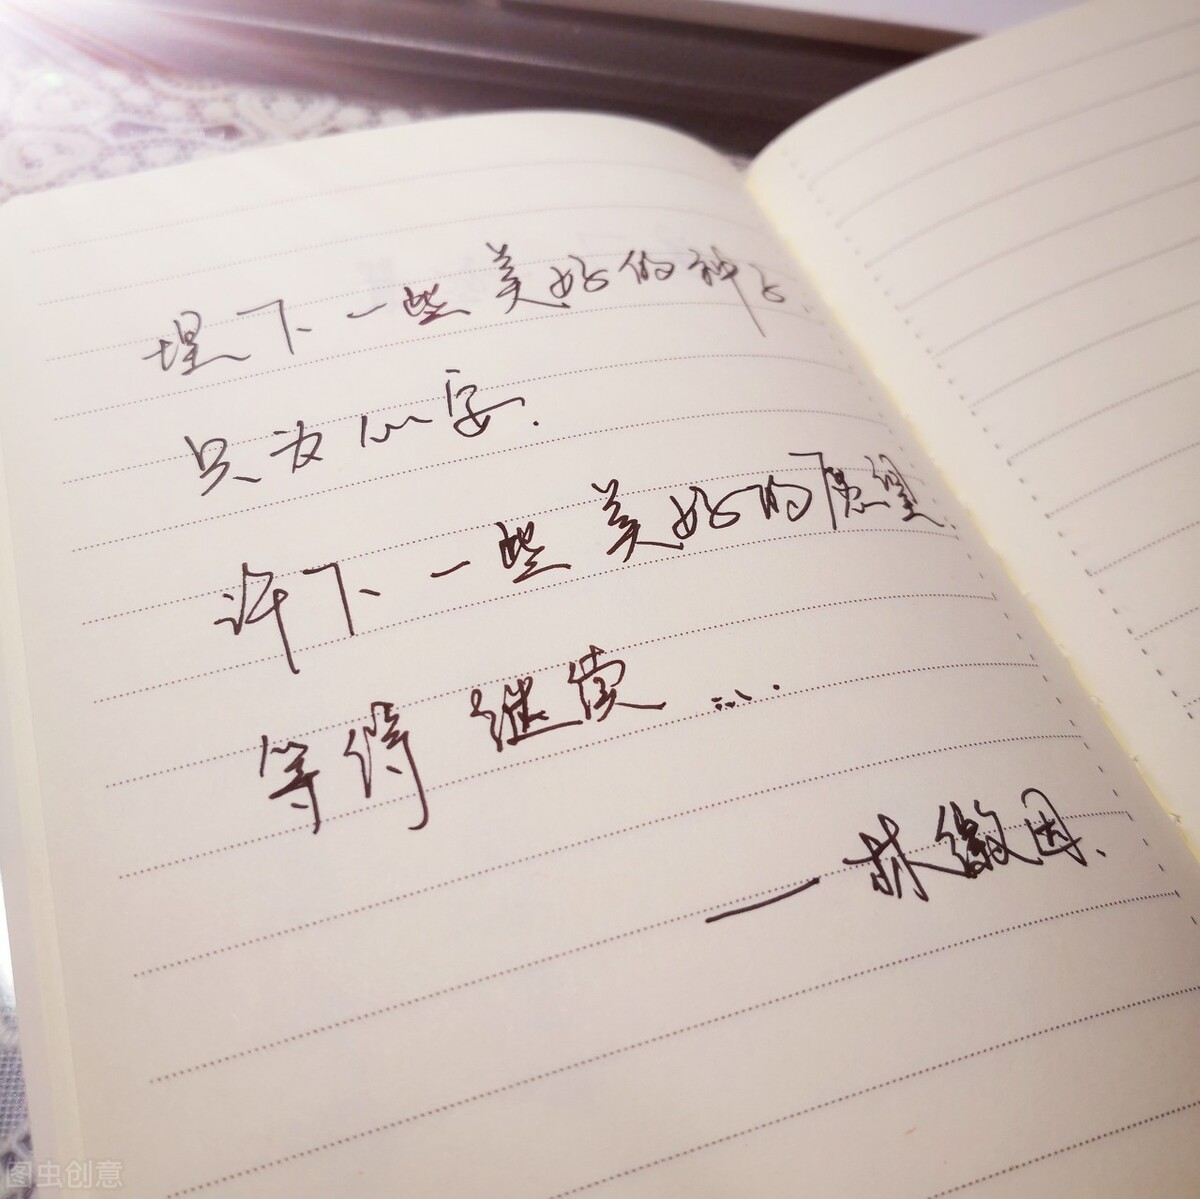 埋下一些美好的种子
只为心安.
许下一些美好的愿望.
等待 继续……
——林徽因、
图虫创意